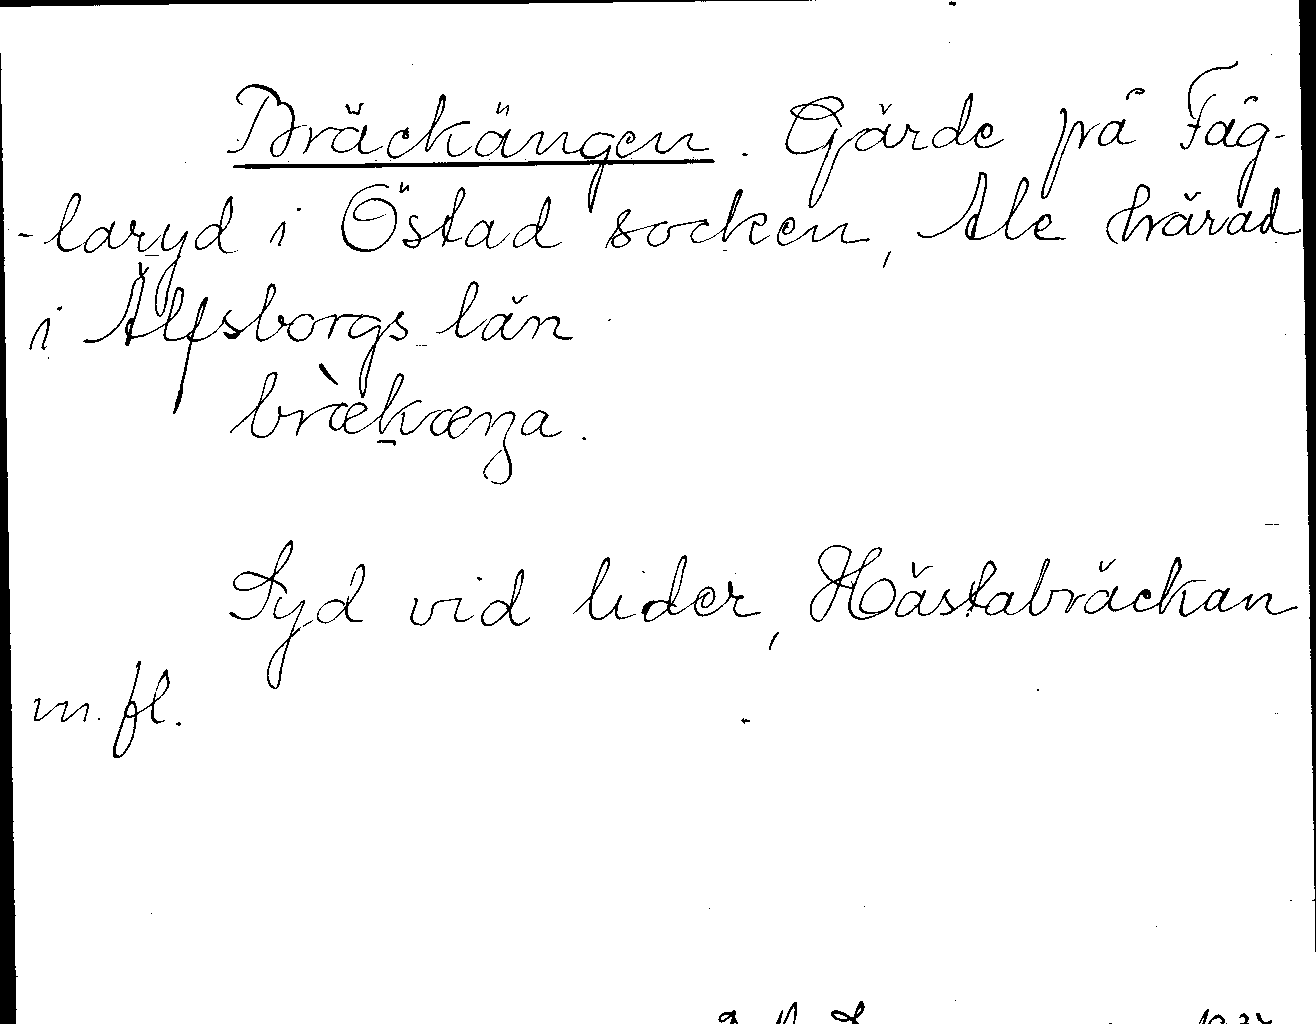 Bräckängen. Gärde på Fåg-
-laryd i Östad socken, Ale härad
i Älfsborgs län
bræ̀kæŋa.
Syd vid lider, Hästabräckan
m. fl.